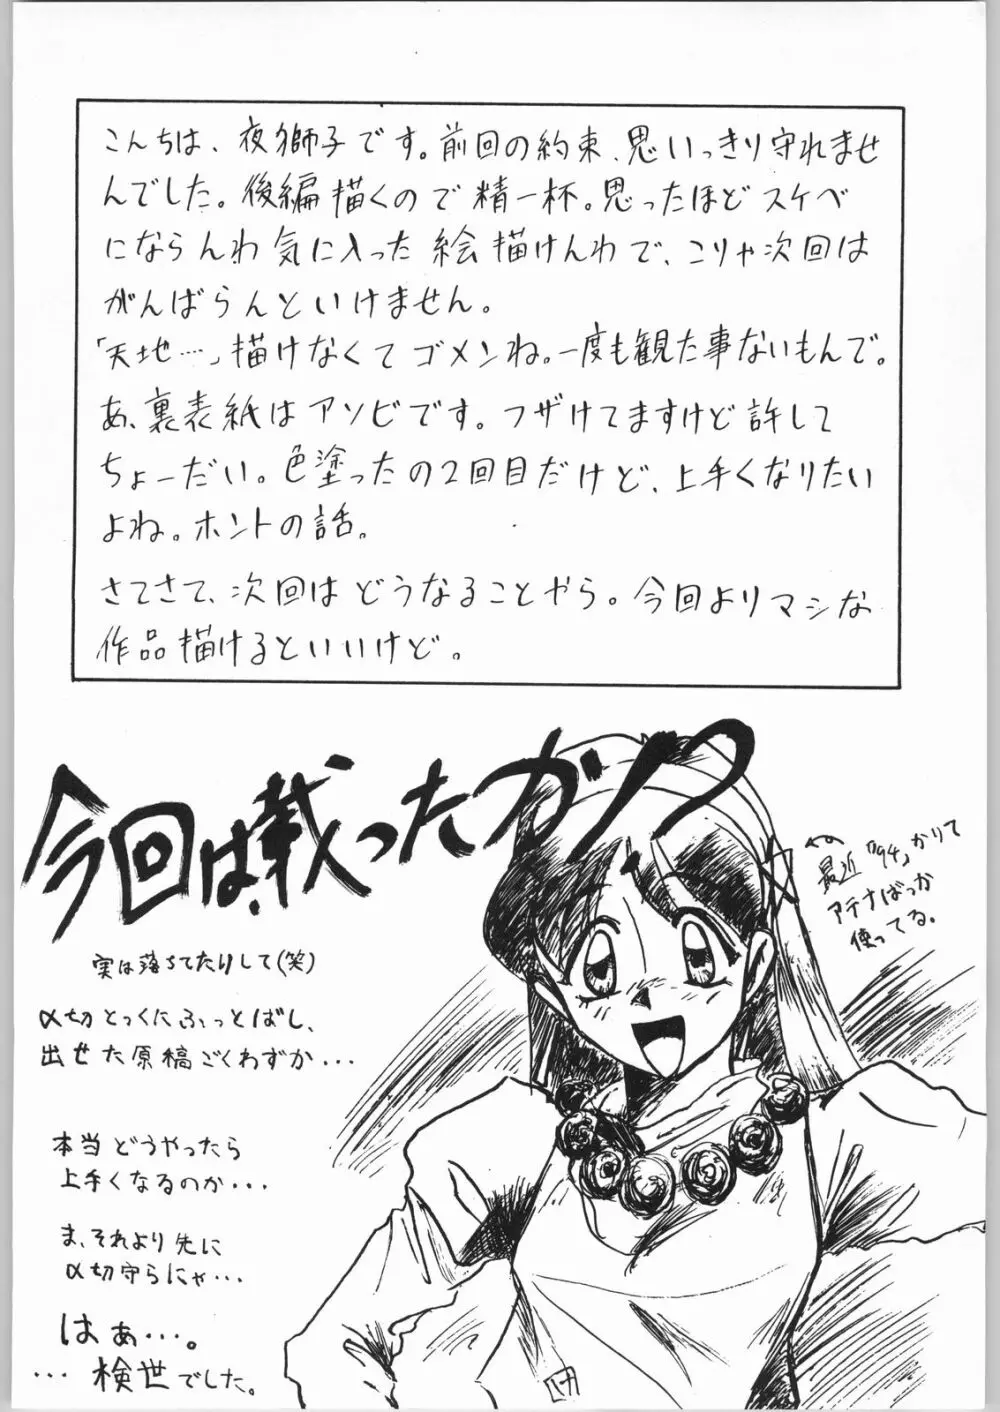 こんちは、夜獅子です。前回の約束、思いっきり守れませ
んでした。後編描くので精一杯。思ったほどスケベ
にならんわ気に入った絵描けんわで、こりゃ次回は
がんばらんといけません。
「天地…」描けなくてゴメンね。一度も観た事ないもんで。
あ、裏表紙はアソビです。フザけてますけど許して
ちょーだい。色塗ったの2回目だけど、上手くなりたい
よね。ホントの話。
さてさて、次回はどうなることやら。今回よりマシな
作品描けるといいけど。
今回は、載ったかソ?
最近「'94」かりて
アテナばっか
使ってる。
実は落ちてたりして(笑)
〆切とっくにふっとばし、
出せた原稿ごくわずか・・・
本当どうやったら
上手くなるのか・・・
ま、それより先に
〆切守らにゃ・・・
はぁ…。
・・・検世でした。